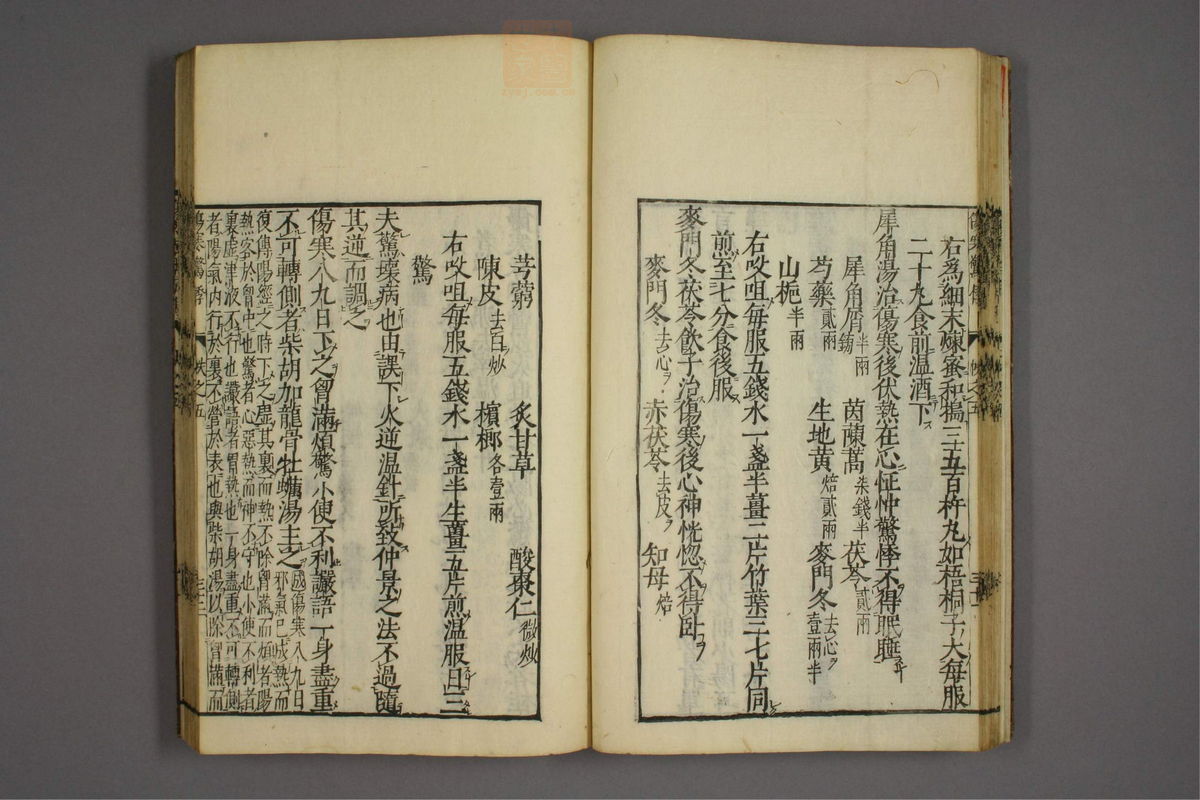 右爲細末煉蜜和搗三五百杵丸如梧桐子大每服
二十丸食前溫酒下
犀角湯治傷寒後伏熱在心怔忡驚悸不得眠睡
犀角屑鎊半兩 茵蔯蒿柒錢半 茯苓貳兩
芍藥貳兩 生地黄焙貳兩 麥門冬去心壹兩半
山梔半兩
右㕮咀每服五錢水一盞半薑三片竹葉三七片同
煎至七分食後服
麥門冬茯苓飲子治傷寒後心神恍惚不得臥
麥門冬去心 赤茯苓去皮 知母焙
芎藭 炙甘草 酸棗仁微炒
陳皮去白炒 檳榔各壹兩
右㕮咀每服五錢水一盞半生薑五片煎溫服日三
驚
夫驚壞病也由誤下火逆温針所致仲景之法不過隨
其逆而調之
傷寒八九日下之胷滿煩驚小便不利讝語一身盡重
不可轉側者柴胡加龍骨牡蠣湯主之成傷寒八九日邪氣已成熱而
復傳陽經之時下之虚其裏而熱不除胷滿而煩者陽
熱客於胷中也驚者心惡熱而神不守也小便不利者
裏虚津液不行也讝語者胃熱也一身盡重不可轉側
者陽氣内行於裏不營於表也與柴胡湯以除胷滿而